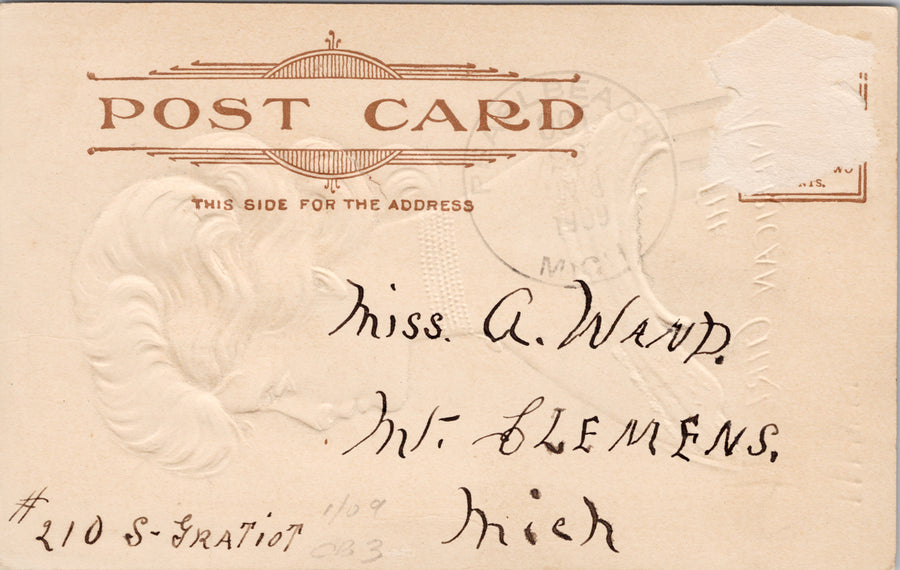 POST CARD
THIS SIDE FOR THE ADDRESS
BEACH
1909
MICH
Miss. A. WAND.
Mt. CLEMENS.
Mich
# 210 S- GRATIOT
1/09
OB3